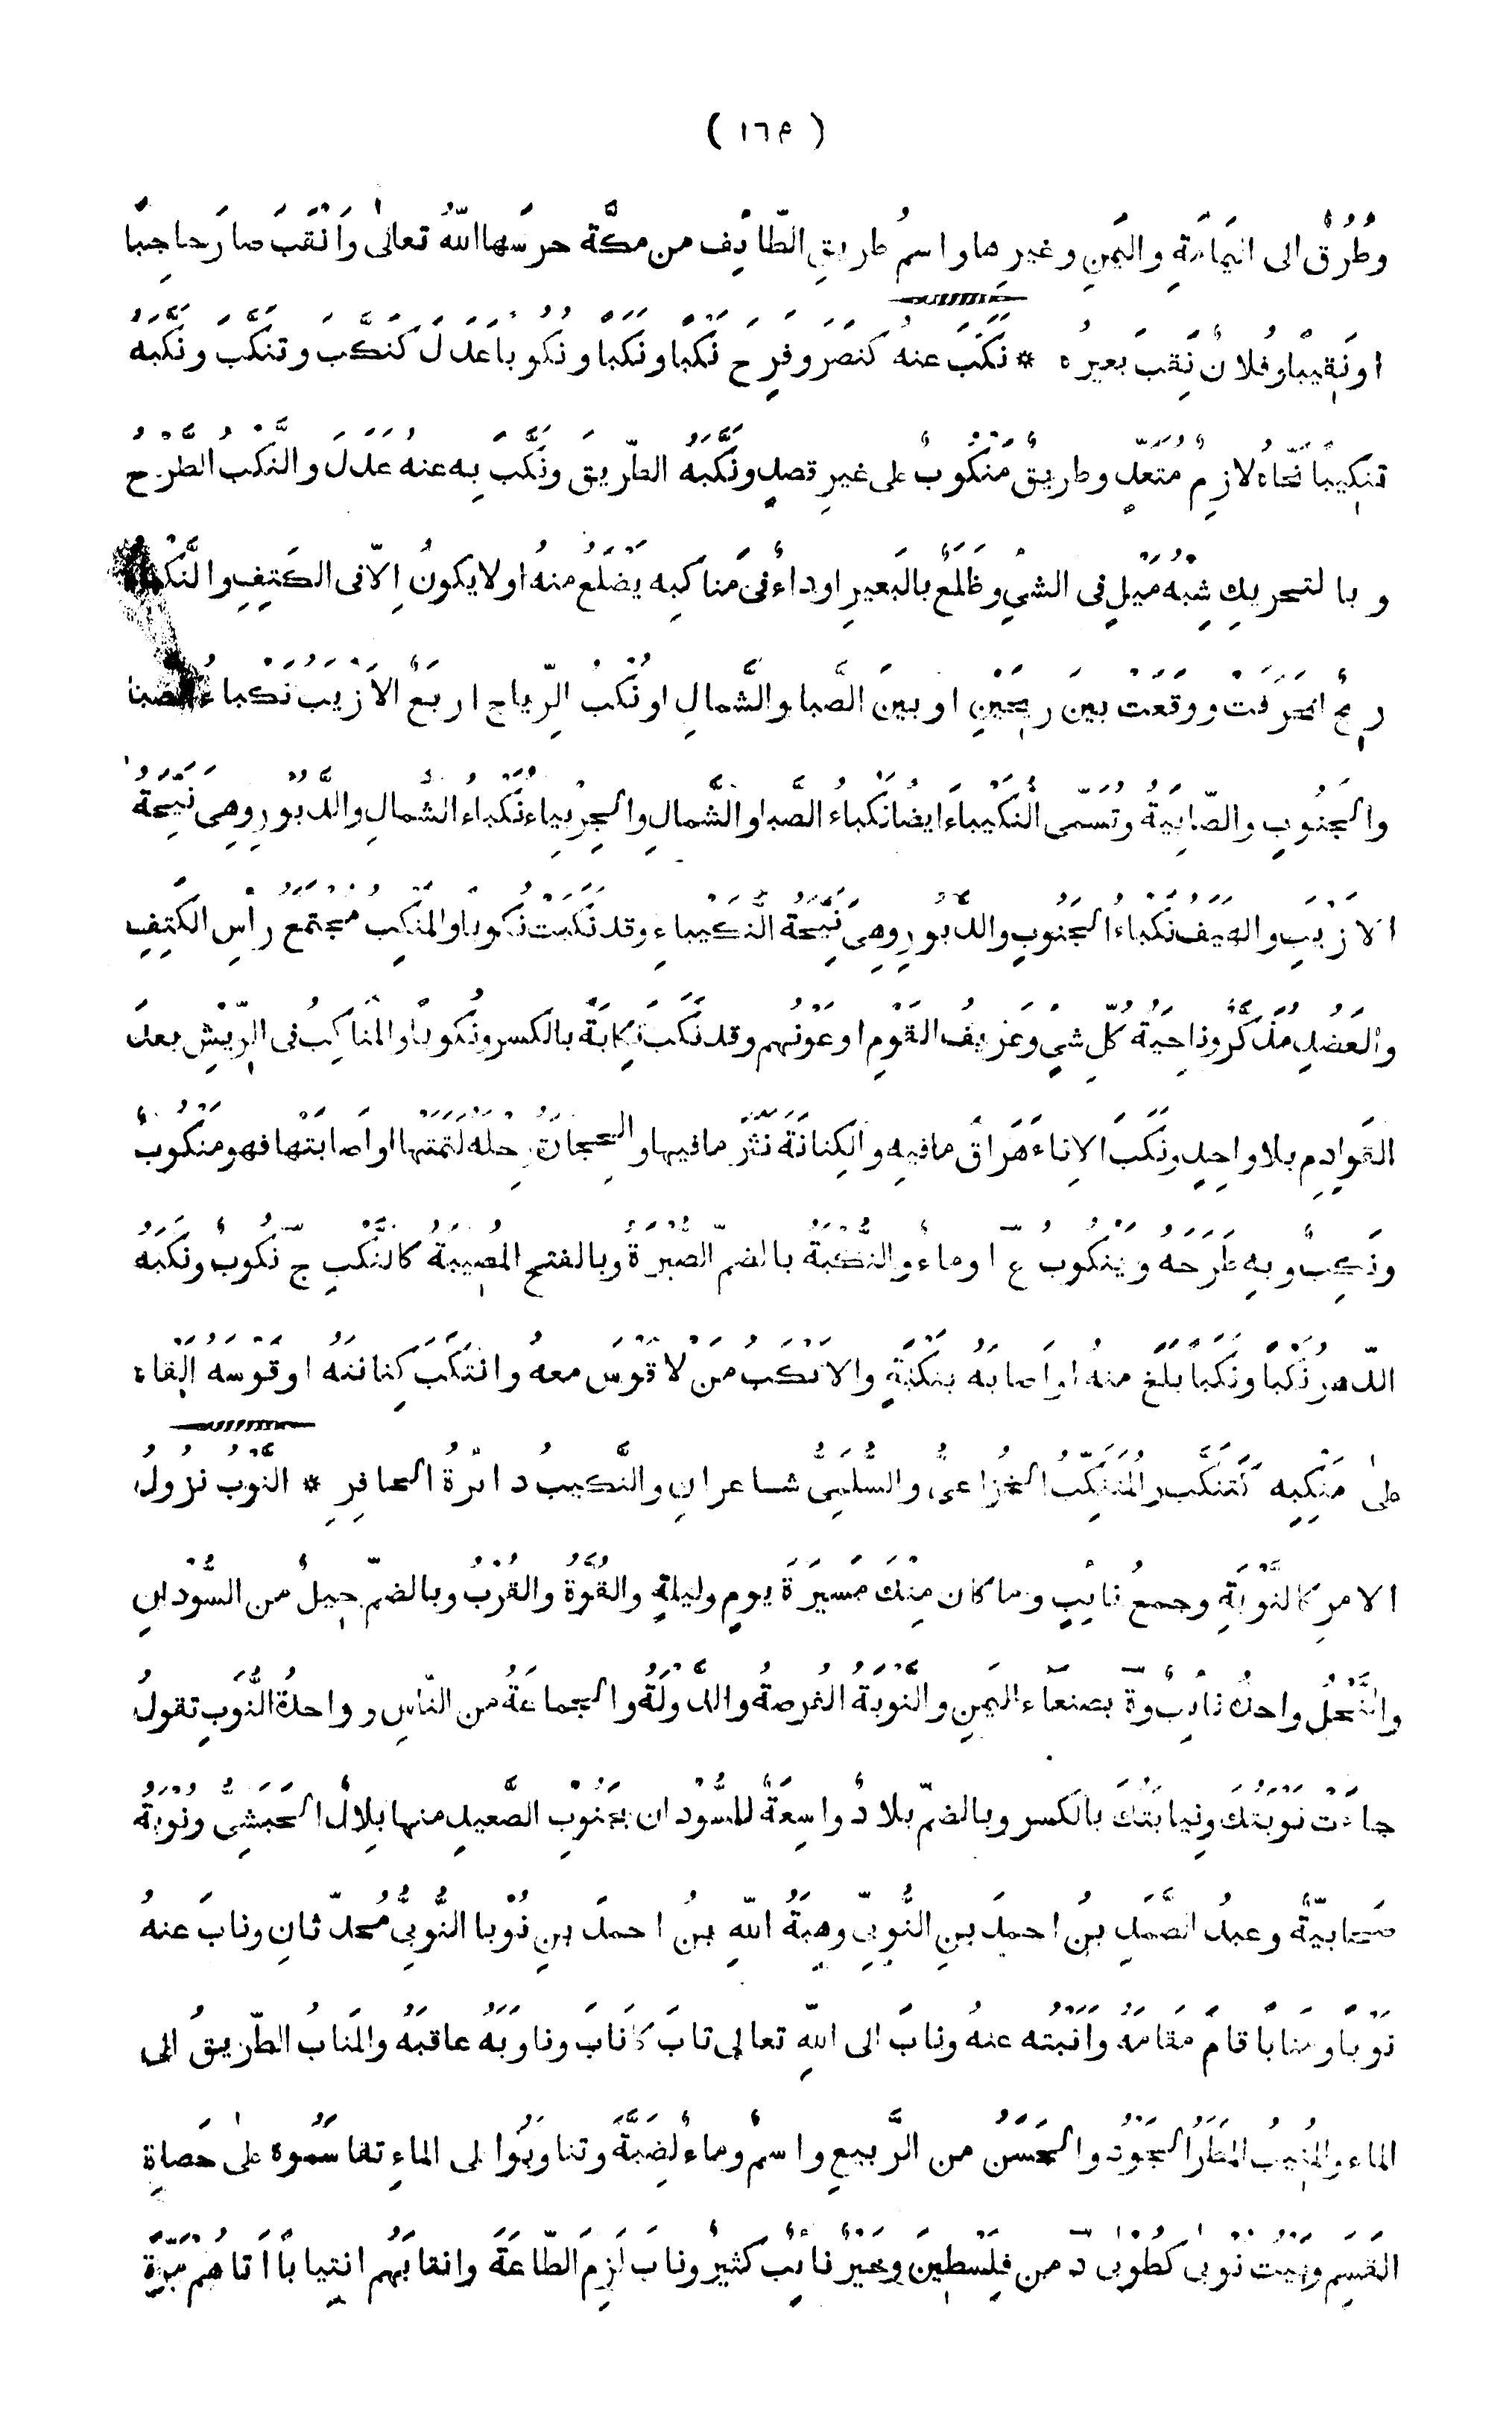 ( ١٦٩ )
وطُرُقٌ الى اليَمامَةِ واليَمَنِ وغيرِها واسمُ طريقِ الطّائِفِ من مكّةَ حرسَها اللّهُ تعالىٰ واَنْقَبَ صارَ حاجِبًا
اونَقِيبًا وفُلانٌ نَقِبَ بعيرُه * نَكَبَ عنهُ كنَصَرَ وفَرِحَ نَكْبًا ونَكَبًا ونُكُوبًا عَدَلَ كنَكَّبَ وتنَكَّبَ ونَكَّبَهُ
تنكِيبًا نَحّاهُ لازِمٌ مُتَعَدٍّ وطريقٌ مَنْكُوبٌ على غيرِ قصدٍ ونَكَّبَهُ الطّريقَ ونَكَّبَ بِه عنه عَدَلَ والنَّكْبُ الطَّرْحُ
وبالتحريكِ شِبْهُ مَيَلٍ فى الشىْءِ وظَلْعٌ بالبَعيرِ اوداءٌ فى مَناكِبِه يَظْلَعُ منهُ اولايكونُ اِلّا فى الكَتِفِ والنَّكْباءُ
ريحٌ انْحَرَفَتْ ووَقَعَتْ بينَ رِيحَيْنِ او بينَ الصَّبا والشَّمالِ اونُكْبُ الرِّياحِ اربَعٌ الاَزْيَبُ نَكْباءُ الصَّبا
والجَنُوبِ والصّابِيَةُ وتُسَمّى النُّكَيْباءَ ايضًا نَكْباءُ الصَّبا والشَّمالِ والجِرْبِياءُ نَكْباءُ الشَّمالِ والدَّبُورِ وهِىَ نَيِّحَةُ
الاَزْيَبِ والهَيْفُ نَكْباءُ الجَنُوبِ والدَّبُورِ وهِىَ نَيِّحَةُ النُّكَيْباءِ وقد نَكَبَتْ نُكُوبًا والمَنْكِبُ مُجْتَمَعُ رأسِ الكَتِفِ
والعَضُدِ مُذَكَّرٌ وناحِيَةُ كُلِّ شىْءٍ وعَرِيفُ القَوْمِ اوعَوْنُهم وقد نَكَبَ نِكابَةً بالكسر ونُكُوبًا والمَناكِبُ فى الرّيشِ بعدَ
القَوادِمِ بلا واحدٍ ونَكَبَ الاِناءَ هَراقَ مافيهِ والكِنانَةَ نَثَرَ مافيها والحِجارَةُ رِجْلَه لَثَمَتْها اواَصابَتْها فهو مَنْكُوبٌ
ونَكِبٌ وبِه طَرَحَهُ ويَنْكُوبُ ع اوماءٌ والنُّكْبَةُ بالضمّ الصُّبْرَةُ وبالفتح المُصِيبَةُ كالنَّكْبِ ج نُكُوبٌ ونَكَبَهُ
الدّهرُ نَكْبًا ونَكَبًا بَلَغَ منهُ اواَصابَهُ بنَكْبَةٍ والاَنْكَبُ مَنْ لاقَوْسَ معهُ وانْتَكَبَ كِنانَتَهُ اوقَوْسَهُ اَلْقاه
علىٰ مَنْكِبِه كتَنَكَّبَ والمُتَنَكِّبُ الخُزاعِىُّ والسُّلَمِىُّ شاعرانِ والنَّكِيبُ دائرةُ الحافِرِ * النَّوْبُ نُزُولُ
الامرِ كالنَّوْبَةِ وجمعُ نائِبٍ وماكان مِنْكَ مَسِيرَةَ يومٍ وليلةٍ والقُوَّةُ والقُرْبُ وبالضمّ جِيلٌ من السُّودانِ
والنَّحْلُ واحدُه نائِبٌ وة بصنعاءاليمنِ والنَّوْبَةُ الفُرصةُ والدَّوْلَةُ والجماعَةُ من النّاسِ وواحدةُ النُّوَبِ تقولُ
جاءَتْ نَوْبَتُكَ ونِيابَتُكَ بالكسر وبالضمّ بلادٌ واسِعَةٌ للسُّودانِ بجَنُوبِ الصَّعيدِ منها بِلالٌ الحَبَشِىُّ ونُوبَةُ
صَحابيّةٌ وعبدُ الصَّمَدِ بنُ احمدَ بنِ النُّوبِىِّ وهِبَةُ اللّهِ بنُ احمدَ بنِ نُوبا النُّوبِىُّ مُحدّثانِ ونابَ عنهُ
نَوْبًا ومَنابًا قامَ مَقامَهُ واَنَبْتُه عنهُ ونابَ الى اللّهِ تعالى تابَ كاَنابَ وناوَبَهُ عاقَبَهُ والمَنابُ الطّريقُ الى
الماء والمُنِيبُ المَطَرُ الجَوْدُ والحَسَنُ من الرَّبيعِ واسمٌ وماءٌ لِضَبَّةَ وتناوَبُوا على الماءِ تقاسَمُوه علىٰ حَصاةِ
القَسْمِ وبَيْتُ نُوبىٰ كطُوبىٰ د من فِلَسْطِينَ وخَيْرٌ نائِبٌ كثيرٌ ونابَ لَزِمَ الطّاعَةَ وانتابَهُم انْتِيابًا اَتاهُم مَرَّةً